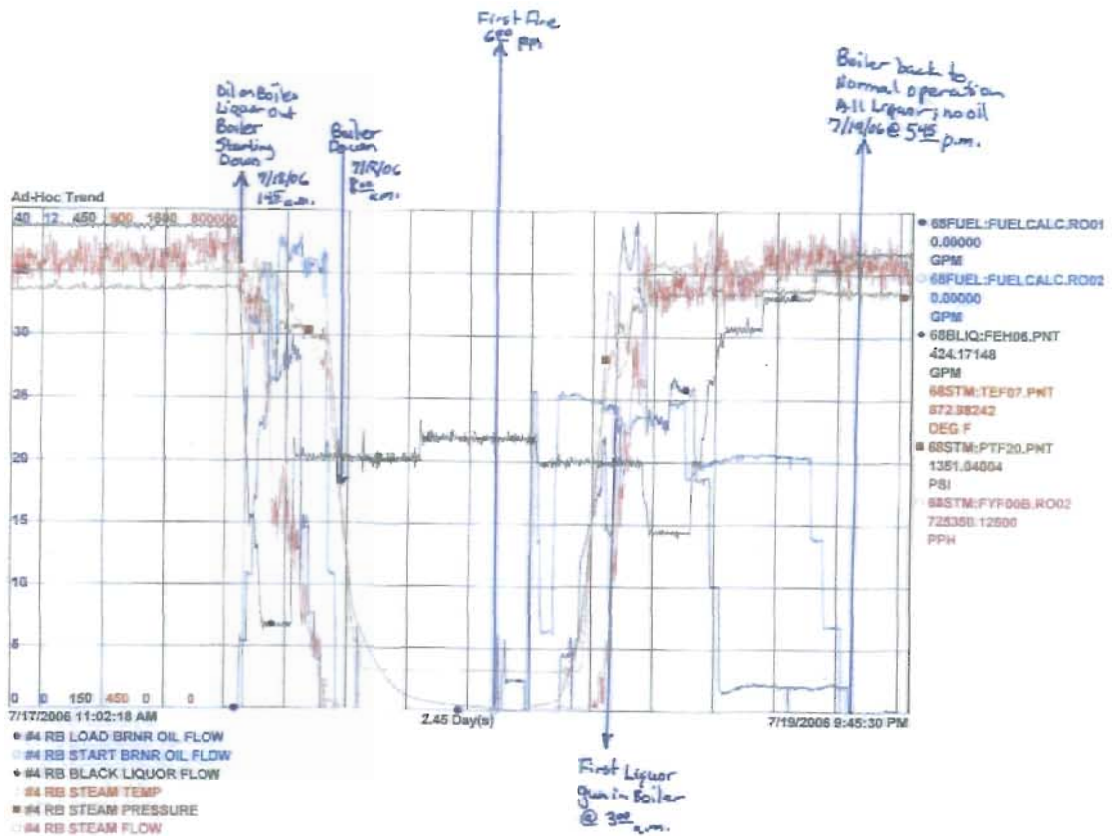 First Fire
6:00 PM
Oil on Boiler
Liquor out
Boiler
Starting
Down
7/18/06
1:45 a.m.
Boiler
Down
7/18/06
8:00 a.m.
Boiler back to
Normal operation
All Liquor; no oil
7/19/06 @ 5:45 p.m.
Ad-Hoc Trend
40 12 450 900 1600 800000
30
25
20
15
10
5
0 0 150 450 0 0
7/17/2006 11:02:18 AM
2.45 Day(s)
7/19/2006 9:45:30 PM
68FUEL:FUELCALC.RO01
0.00000
GPM
68FUEL:FUELCALC.RO02
0.00000
GPM
68BLIQ:FEH06.PNT
424.17148
GPM
68STM:TEF07.PNT
872.98242
DEG F
68STM:PTF20.PNT
1351.04004
PSI
68STM:FYF00B.RO02
725350.12500
PPH
#4 RB LOAD BRNR OIL FLOW
#4 RB START BRNR OIL FLOW
#4 RB BLACK LIQUOR FLOW
#4 RB STEAM TEMP
#4 RB STEAM PRESSURE
#4 RB STEAM FLOW
First Liquor
gun in Boiler
@ 3:00 a.m.